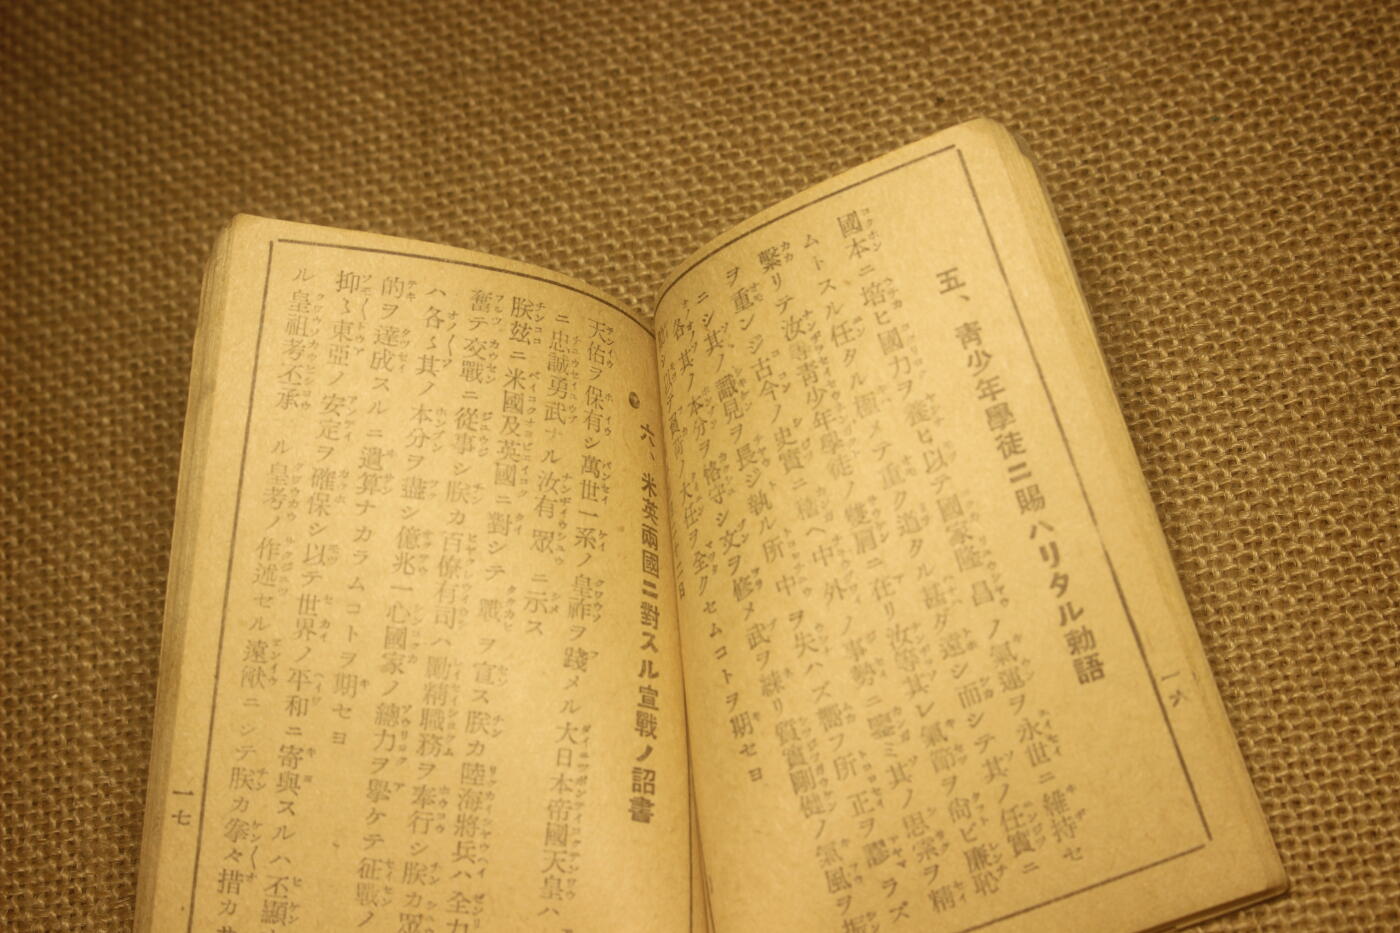 五、靑少年學徒ニ賜ハリタル勅語
國本ニ培ヒ國力ヲ養ヒ以テ國家隆昌ノ氣運ヲ永世ニ維持セ
ムトスル任タル極メテ重ク道タル甚ダ遠シ而シテ其ノ任實ニ
繫リテ汝等靑少年學徒ノ雙肩ニ在リ汝等其レ氣節ヲ尙ビ廉恥
ヲ重ンジ古今ノ史實ニ稽ヘ中外ノ事勢ニ鑒ミ其ノ思索ヲ精
ニシ其ノ識見ヲ長ジ執ル所中ヲ失ハズ嚮フ所正ヲ謬ラズ
各〻其ノ本分ヲ恪守シ文ヲ修メ武ヲ練リ質實剛健ノ氣風ヲ振
シ以テ負荷ノ大任ヲ全クセムコトヲ期セヨ
一六
六、米英兩國ニ對スル宣戰ノ詔書
天佑ヲ保有シ萬世一系ノ皇祚ヲ踐メル大日本帝國天皇ハ
ニ忠誠勇武ナル汝有眾ニ示ス
朕玆ニ米國及英國ニ對シテ戰ヲ宣ス朕カ陸海將兵ハ全力
奮テ交戰ニ從事シ朕カ百僚有司ハ勵精職務ヲ奉行シ朕カ眾
ハ各〻其ノ本分ヲ盡シ億兆一心國家ノ總力ヲ擧ケテ征戰ノ
的ヲ達成スルニ遺算ナカラムコトヲ期セヨ
抑〻東亞ノ安定ヲ確保シ以テ世界ノ平和ニ寄與スルハ不顯
ル皇祖考不承ナル皇考ノ作述セル遠猷ニシテ朕カ拳々措カ
一七